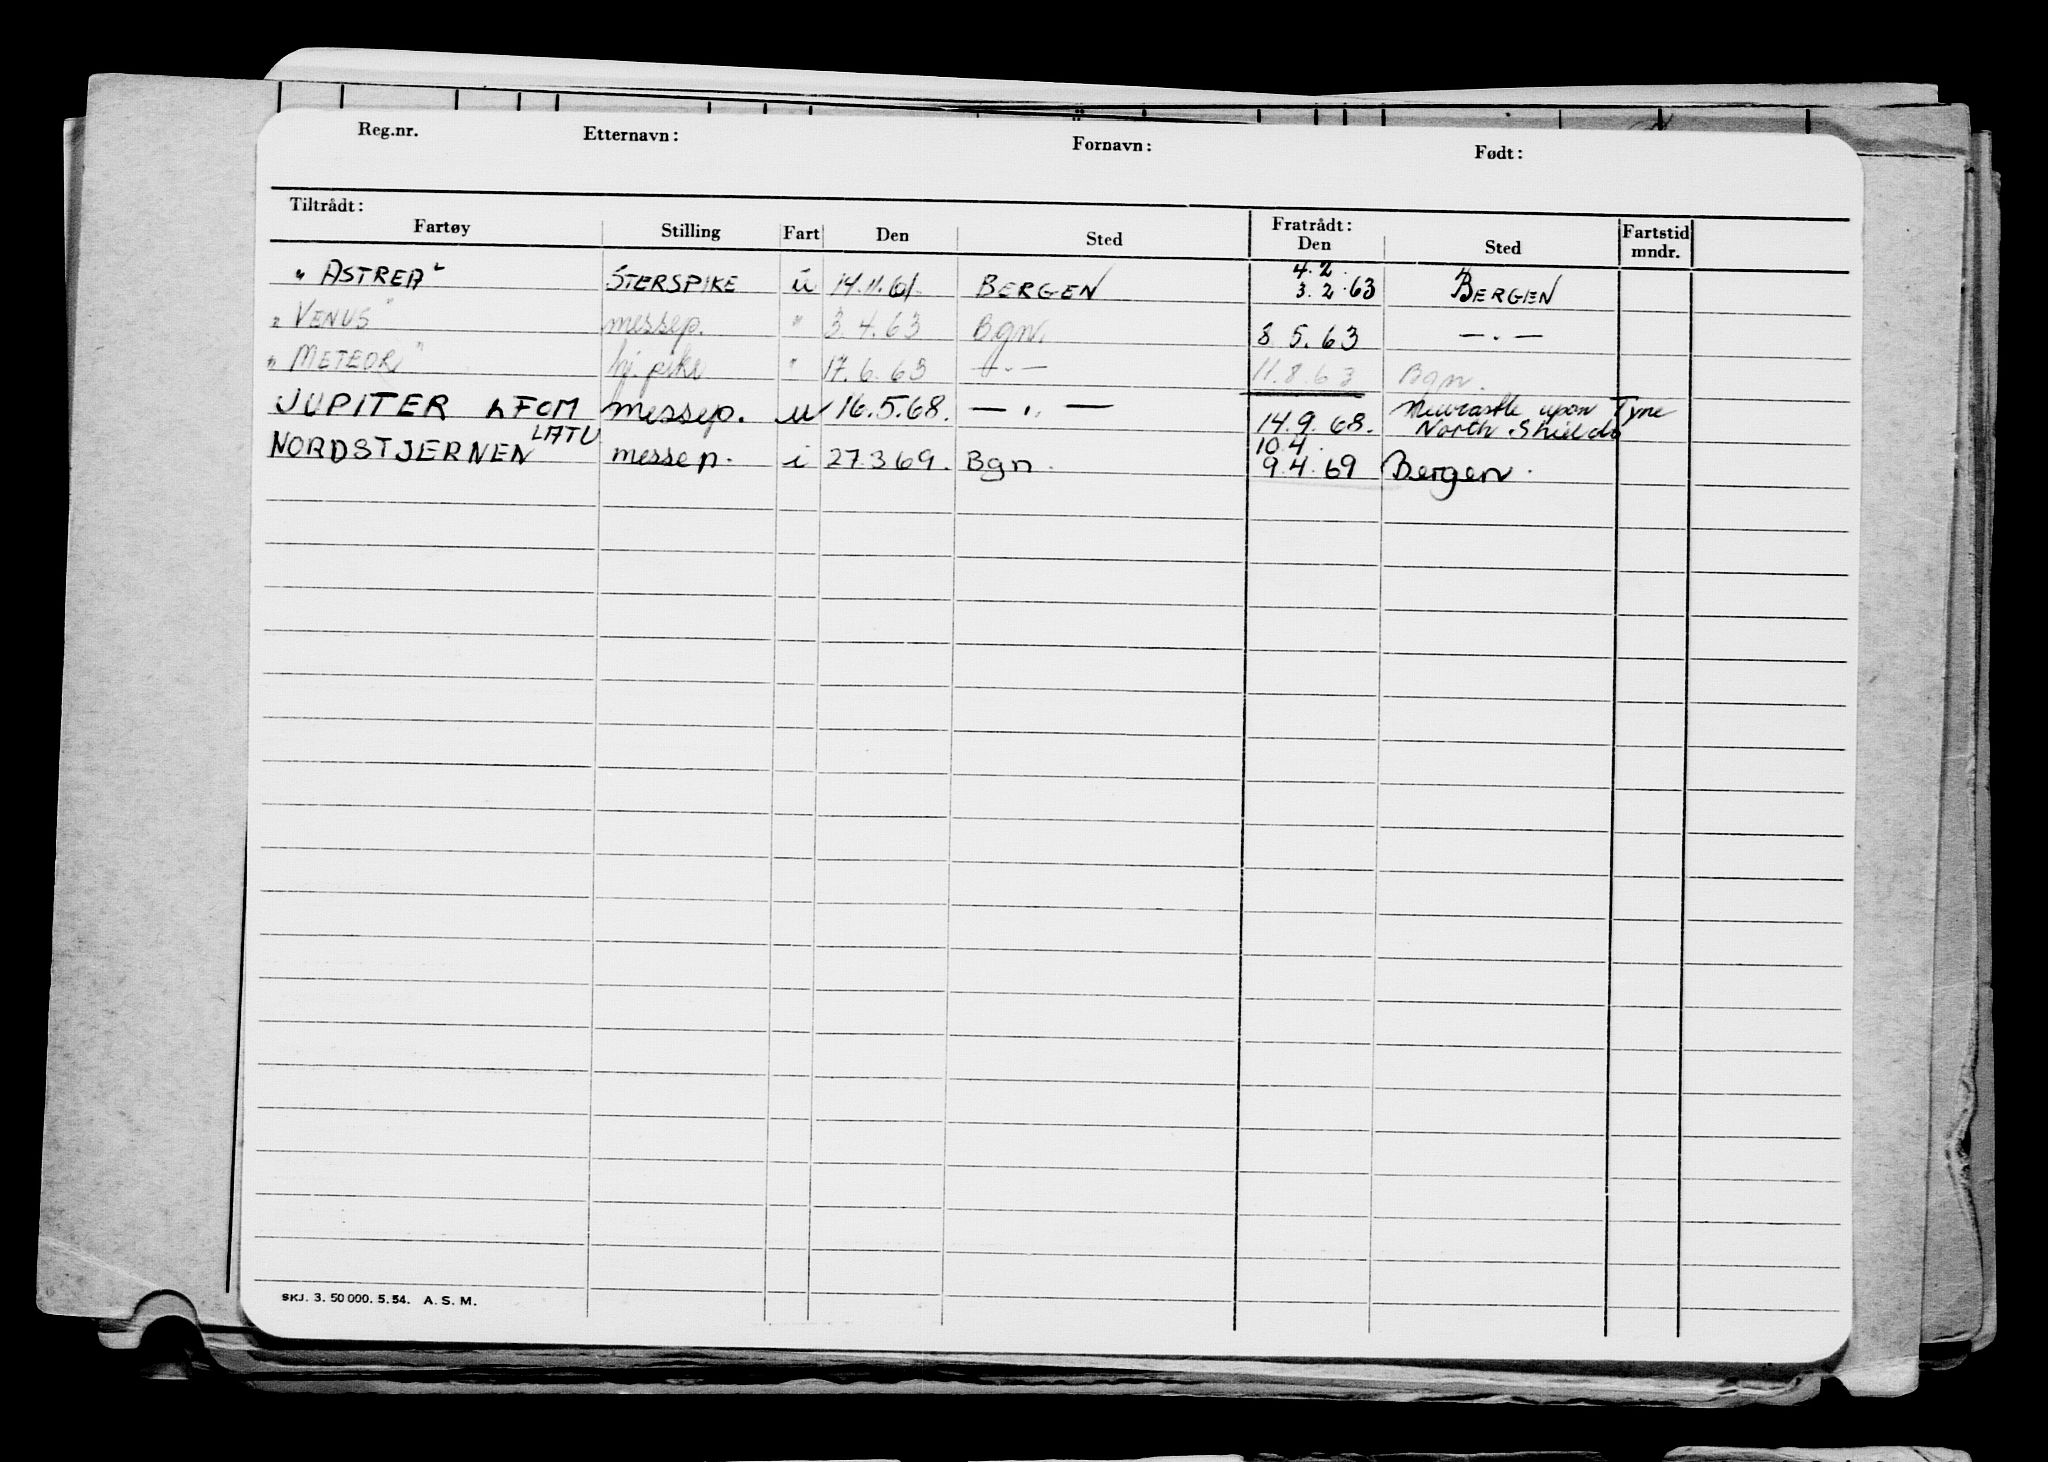 Reg.nr. Etternavn: Fornavn: Født:
Tiltrådt: Fratrådt:
Fartøy Stilling Fart Den Sted Den Sted Fartstid mndr.
4.2.
"ASTREA" STERSPIKE u 14.11.61. BERGEN 3.2.63 BERGEN
"VENUS" messep. " 3.4.63 Bgn. 8 5.63 — . —
"METEOR" hj. pike " 17.6.63 — . — 11.8.63 Bgn.
JUPITER LFOM messep. u 16.5.68. — " — 14.9.68. Newcastle upon Tyne
North Shields
LATU 10.4.
NORDSTJERNEN messep. i 27369. Bgn. 9.4.69 Bergen.
SKJ. 3. 50 000. 5. 54. A. S. M.